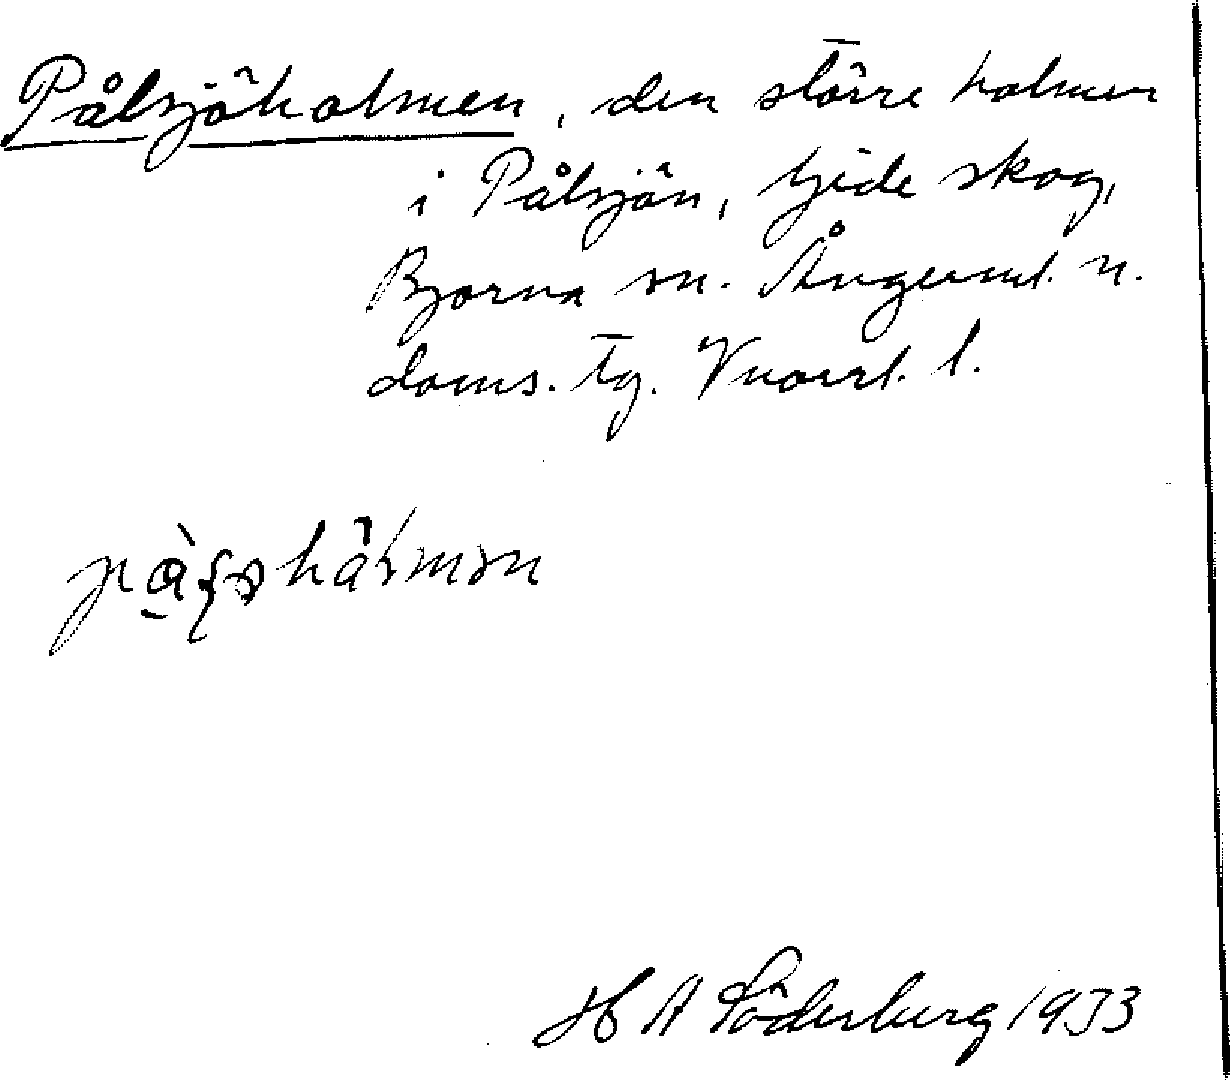 Pålsjöholmen, den större holmen
i Pålsjön, Gide skog,
Björna sn. Ångerml. n.
doms. tg. Vnorrl. l.
H A Söderberg 1933